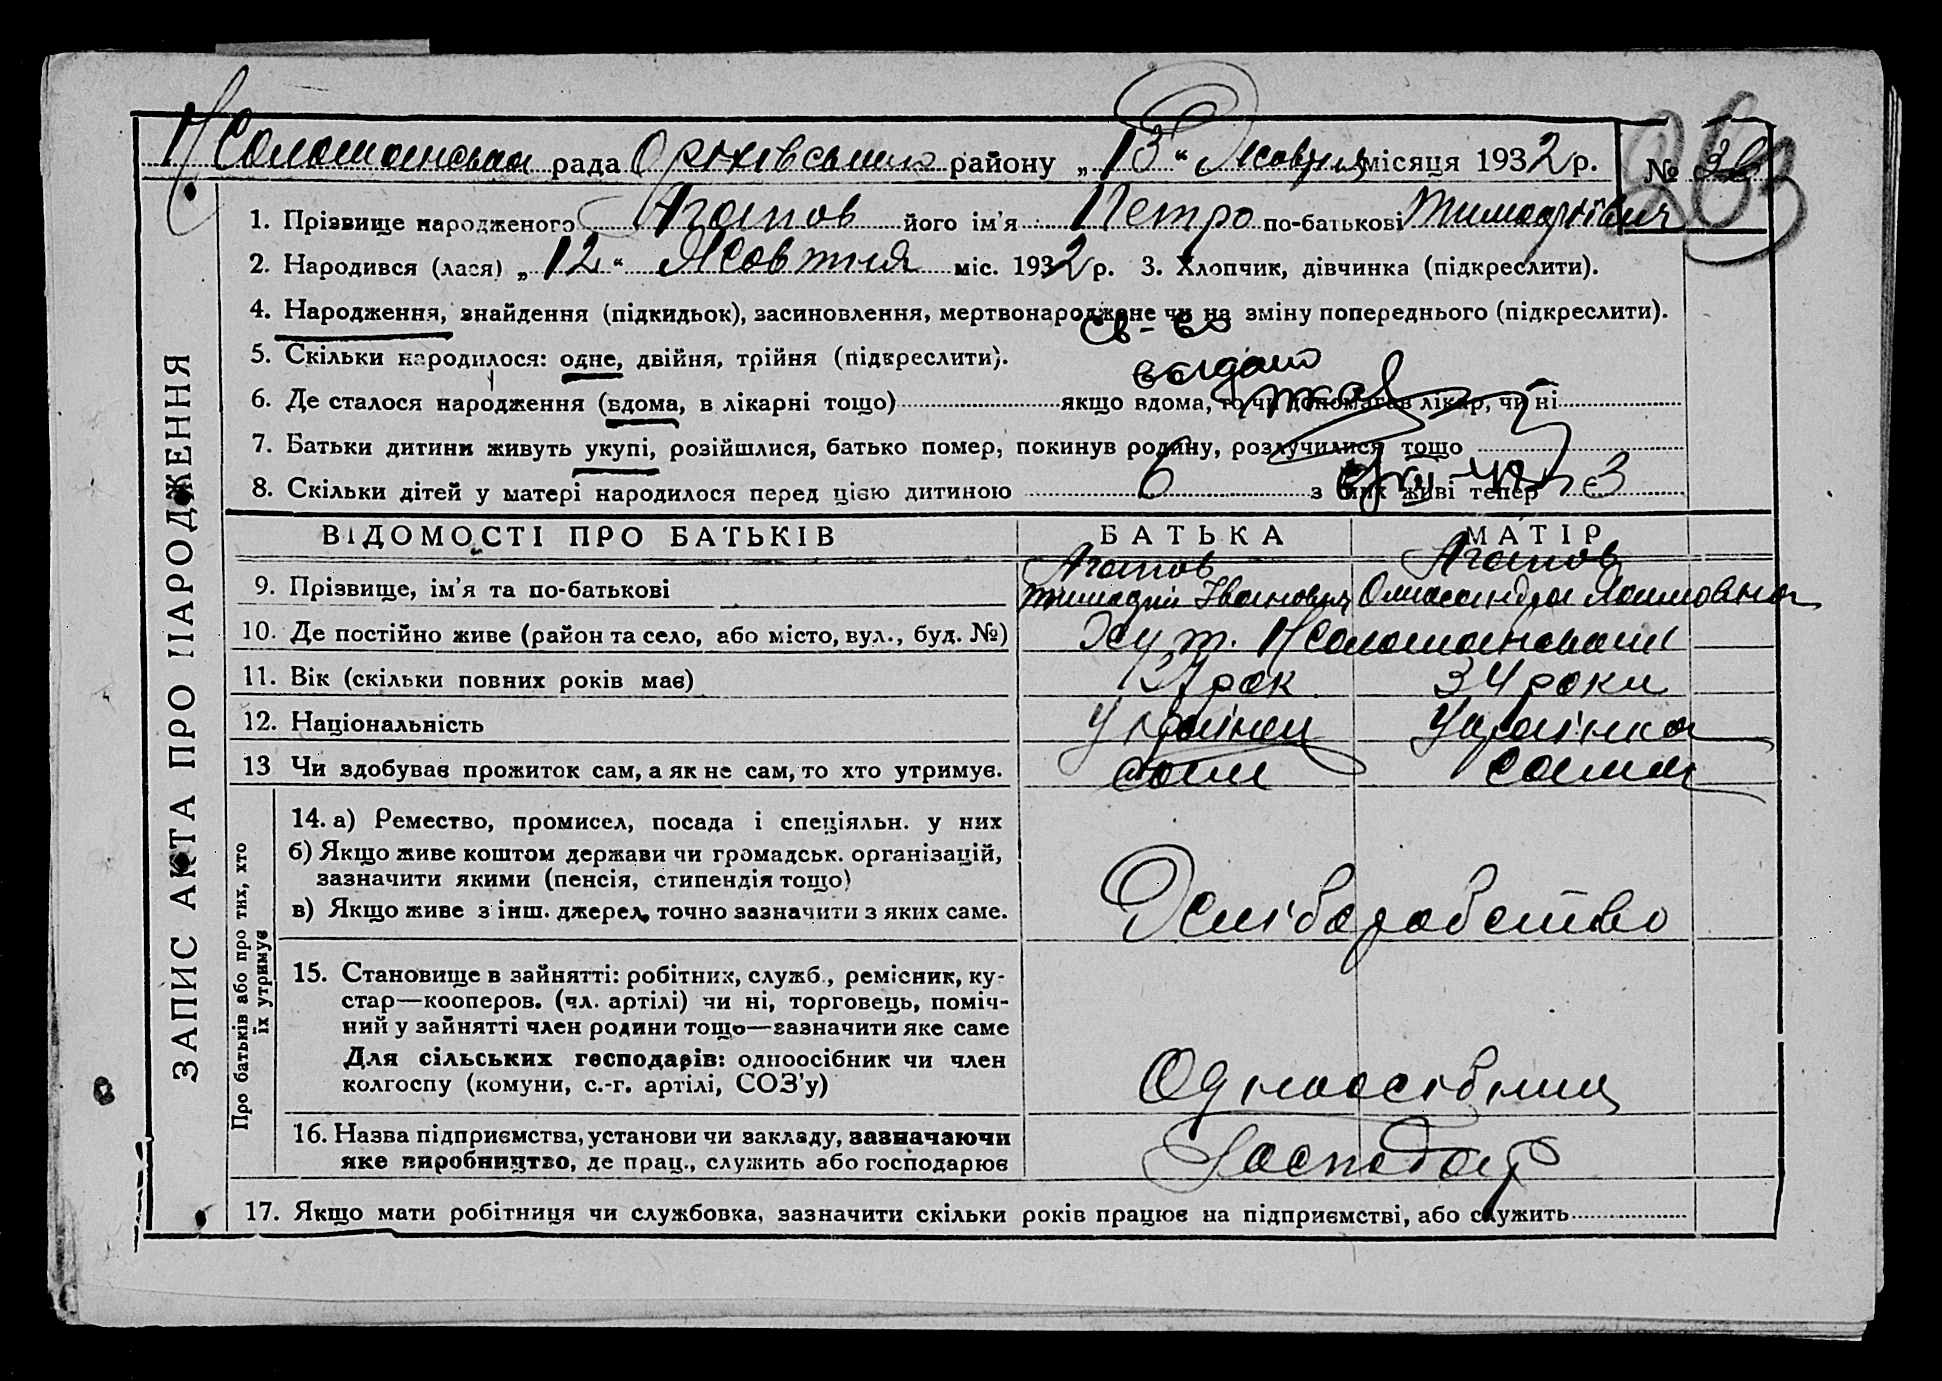 рада Оріхівського району „13“ Жовтня місяця 1932 р. №
1. Прізвище народженого Агапов його ім'я Петро по-батькові Тимофійович
2. Народився (лася) „12“ Жовтня міс. 1932 р. 3. Хлопчик, дівчинка (підкреслити).
4. Народження, знайдення (підкидьок), засиновлення, мертвонароджене чи на зміну попереднього (підкреслити).
5. Скільки народилося: одне, двійня, трійня (підкреслити).
6. Де сталося народження (вдома, в лікарні тощо) якщо вдома, то чи допомагав лікар, чи ні
7. Батьки дитини живуть укупі, розійшлися, батько помер, покинув родину, розлучилися тощо
8. Скільки дітей у матері народилося перед цією дитиною 6 з них живі тепер 3
ВІДОМОСТІ ПРО БАТЬКІВ БАТЬКА МАТІР
Агапов Агапов
9. Прізвище, ім'я та по-батькові Тимофій Іванович Олександра Якимовна
10. Де постійно живе (район та село, або місто, вул., буд. №) Хут.
11. Вік (скільки повних років має) рок 34 роки
12. Національність Українец Українка
13 Чи здобуває прожиток сам, а як не сам, то хто утримує. сам сама
14. а) Ремество, промисел, посада і спеціяльн. у них
б) Якщо живе коштом держави чи громадськ. організацій,
зазначити якими (пенсія, стипендія тощо)
в) Якщо живе з інш. джерел, точно зазначити з яких саме.
Хліборобство
15. Становище в зайнятті: робітник, служб., ремісник, ку-
стар—кооперов. (чл. артілі) чи ні, торговець, поміч-
ний у зайнятті член родини тощо—зазначити яке саме
Для сільських господарів: одноосібник чи член
колгоспу (комуни, с.-г. артілі, СОЗ'у)
Одноосібниц
16. Назва підприємства, установи чи закладу, зазначаючи
яке виробництво, де прац., служить або господарює Господар
17. Якщо мати робітниця чи службовка, зазначити скільки років працює на підприємстві, або служить
ЗАПИС АКТА ПРО НАРОДЖЕННЯ
Про батьків або про тих, хто
їх утримує